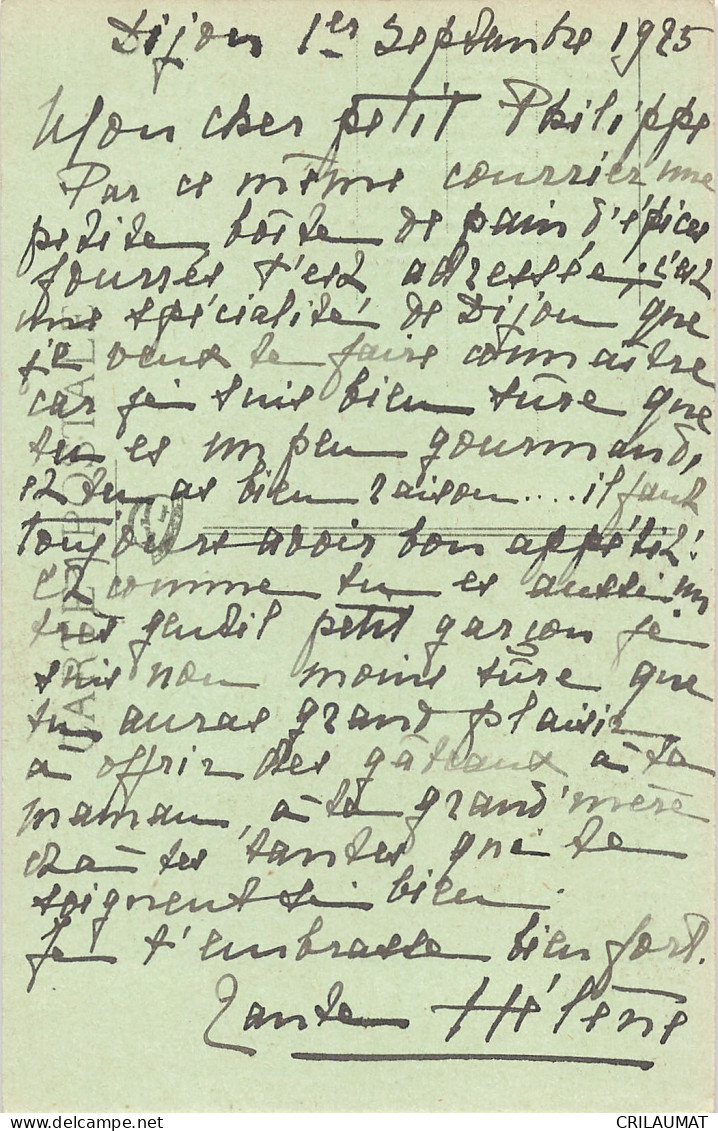 Dijon 1er Septembre 1925
Mon cher petit Philippe
Par ce même courrier une
petite boîte de pain d'épices
fourrés t'est adressée, c'est
une spécialité de Dijon que
je veux te faire connaître
car je suis bien sûre que
tu es un peu gourmand,
et tu as bien raison.... il faut
toujours avoir bon appétit!
Et comme tu es aussi un
très gentil petit garçon je
suis non moins sûre que
tu auras grand plaisir
à offrir des gâteaux à ta
maman, à ta grand'mère
et à tes tantes que te
soignent si bien.
Je t'embrasse bien fort.
Tante Hélène
CARTE POSTALE
CRILAUMAT